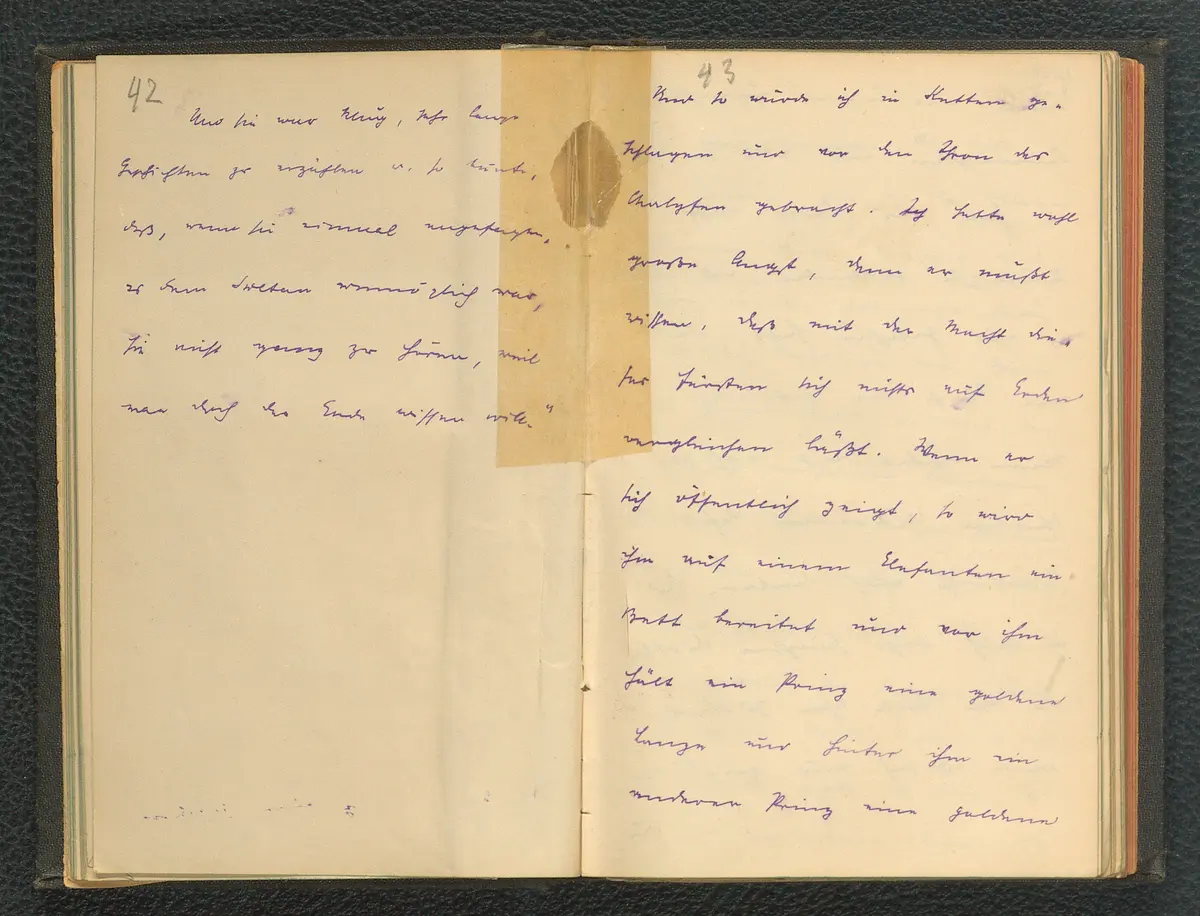 42
Und sie war klug, sehr lange
Geschichten zu erzählen u. so bunte,
daß, wenn sie einmal angefangen,
es dem Sultan unmöglich war,
sie nicht ganz zu hören, weil
man doch das Ende wissen will."
43
Und so wurde ich in Ketten ge-
schlagen und vor den Thron des
Chalyfen gebracht. Ich hatte wohl
große Angst, denn er mußt
wissen, daß mit der Macht die-
ses Fürsten sich nichts auf Erden
vergleichen läßt. Wenn er
sich öffentlich zeigt, so wird
ihm auf einem Elefanten ein
Bett bereitet und vor ihm
hält ein Prinz eine goldene
Lanze und hinter ihm ein
anderer Prinz eine goldene